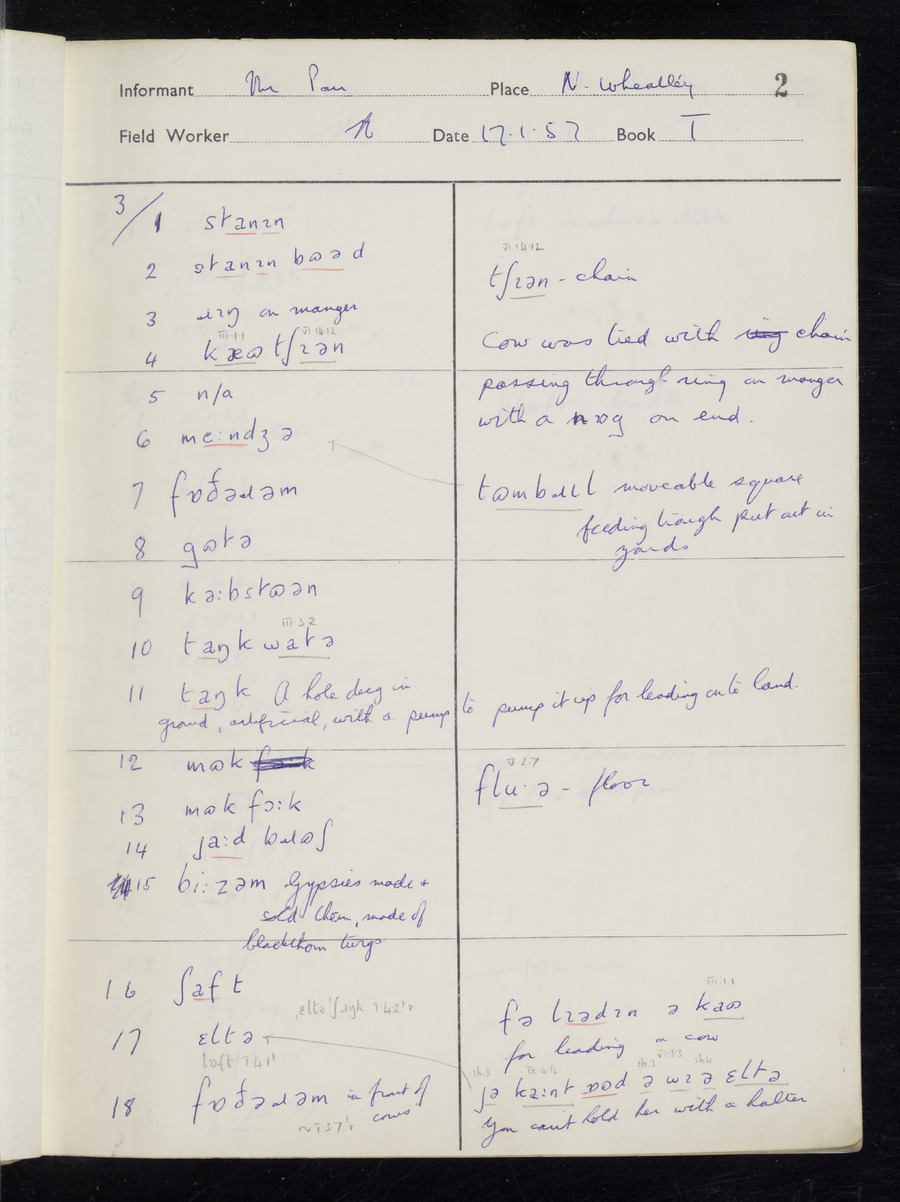 Informant Place N. Wheatley 2
Field Worker Date 17.1.57 Book I
3/1 stanɪn
2 stanɪn bʊəd
3 ɹɪŋ on manger
III·1·1
4 kæʊ tʃɪən
5 n/a
6 me:ndʒə
7 fɒðəɹəm
8 gʊtə
9 kə:bstʊən
III·3·2
10 taŋk watə
11 taŋk A hole deug in
ground, artificial, with a pump to pump it up for leading onto land.
12 mʊk
13 mʊk fɔ:k
14 ja:d bɹʊʃ
15 bi:zəm Gypsies made +
sold them, made of
blackthorn twigs
16 ʃaft
17 ɛltə
loft I 4·1'
18 fɒðəɹəm in front of
cows
VI·14·12
tʃɪən - chain
Cow was tied with ring chain
passing through ring on manger
with a nɒg on end.
tʊmbɹɪl moveable square
feeding trough put out in
yards
V·2·7
flu·ə - floor
III·1·1
fə lɪədɪn ə kaʊ
for leading a cow
jə ka:nt ɒʊd ə wɪ ə ɛltə
You can't hold her with a halter